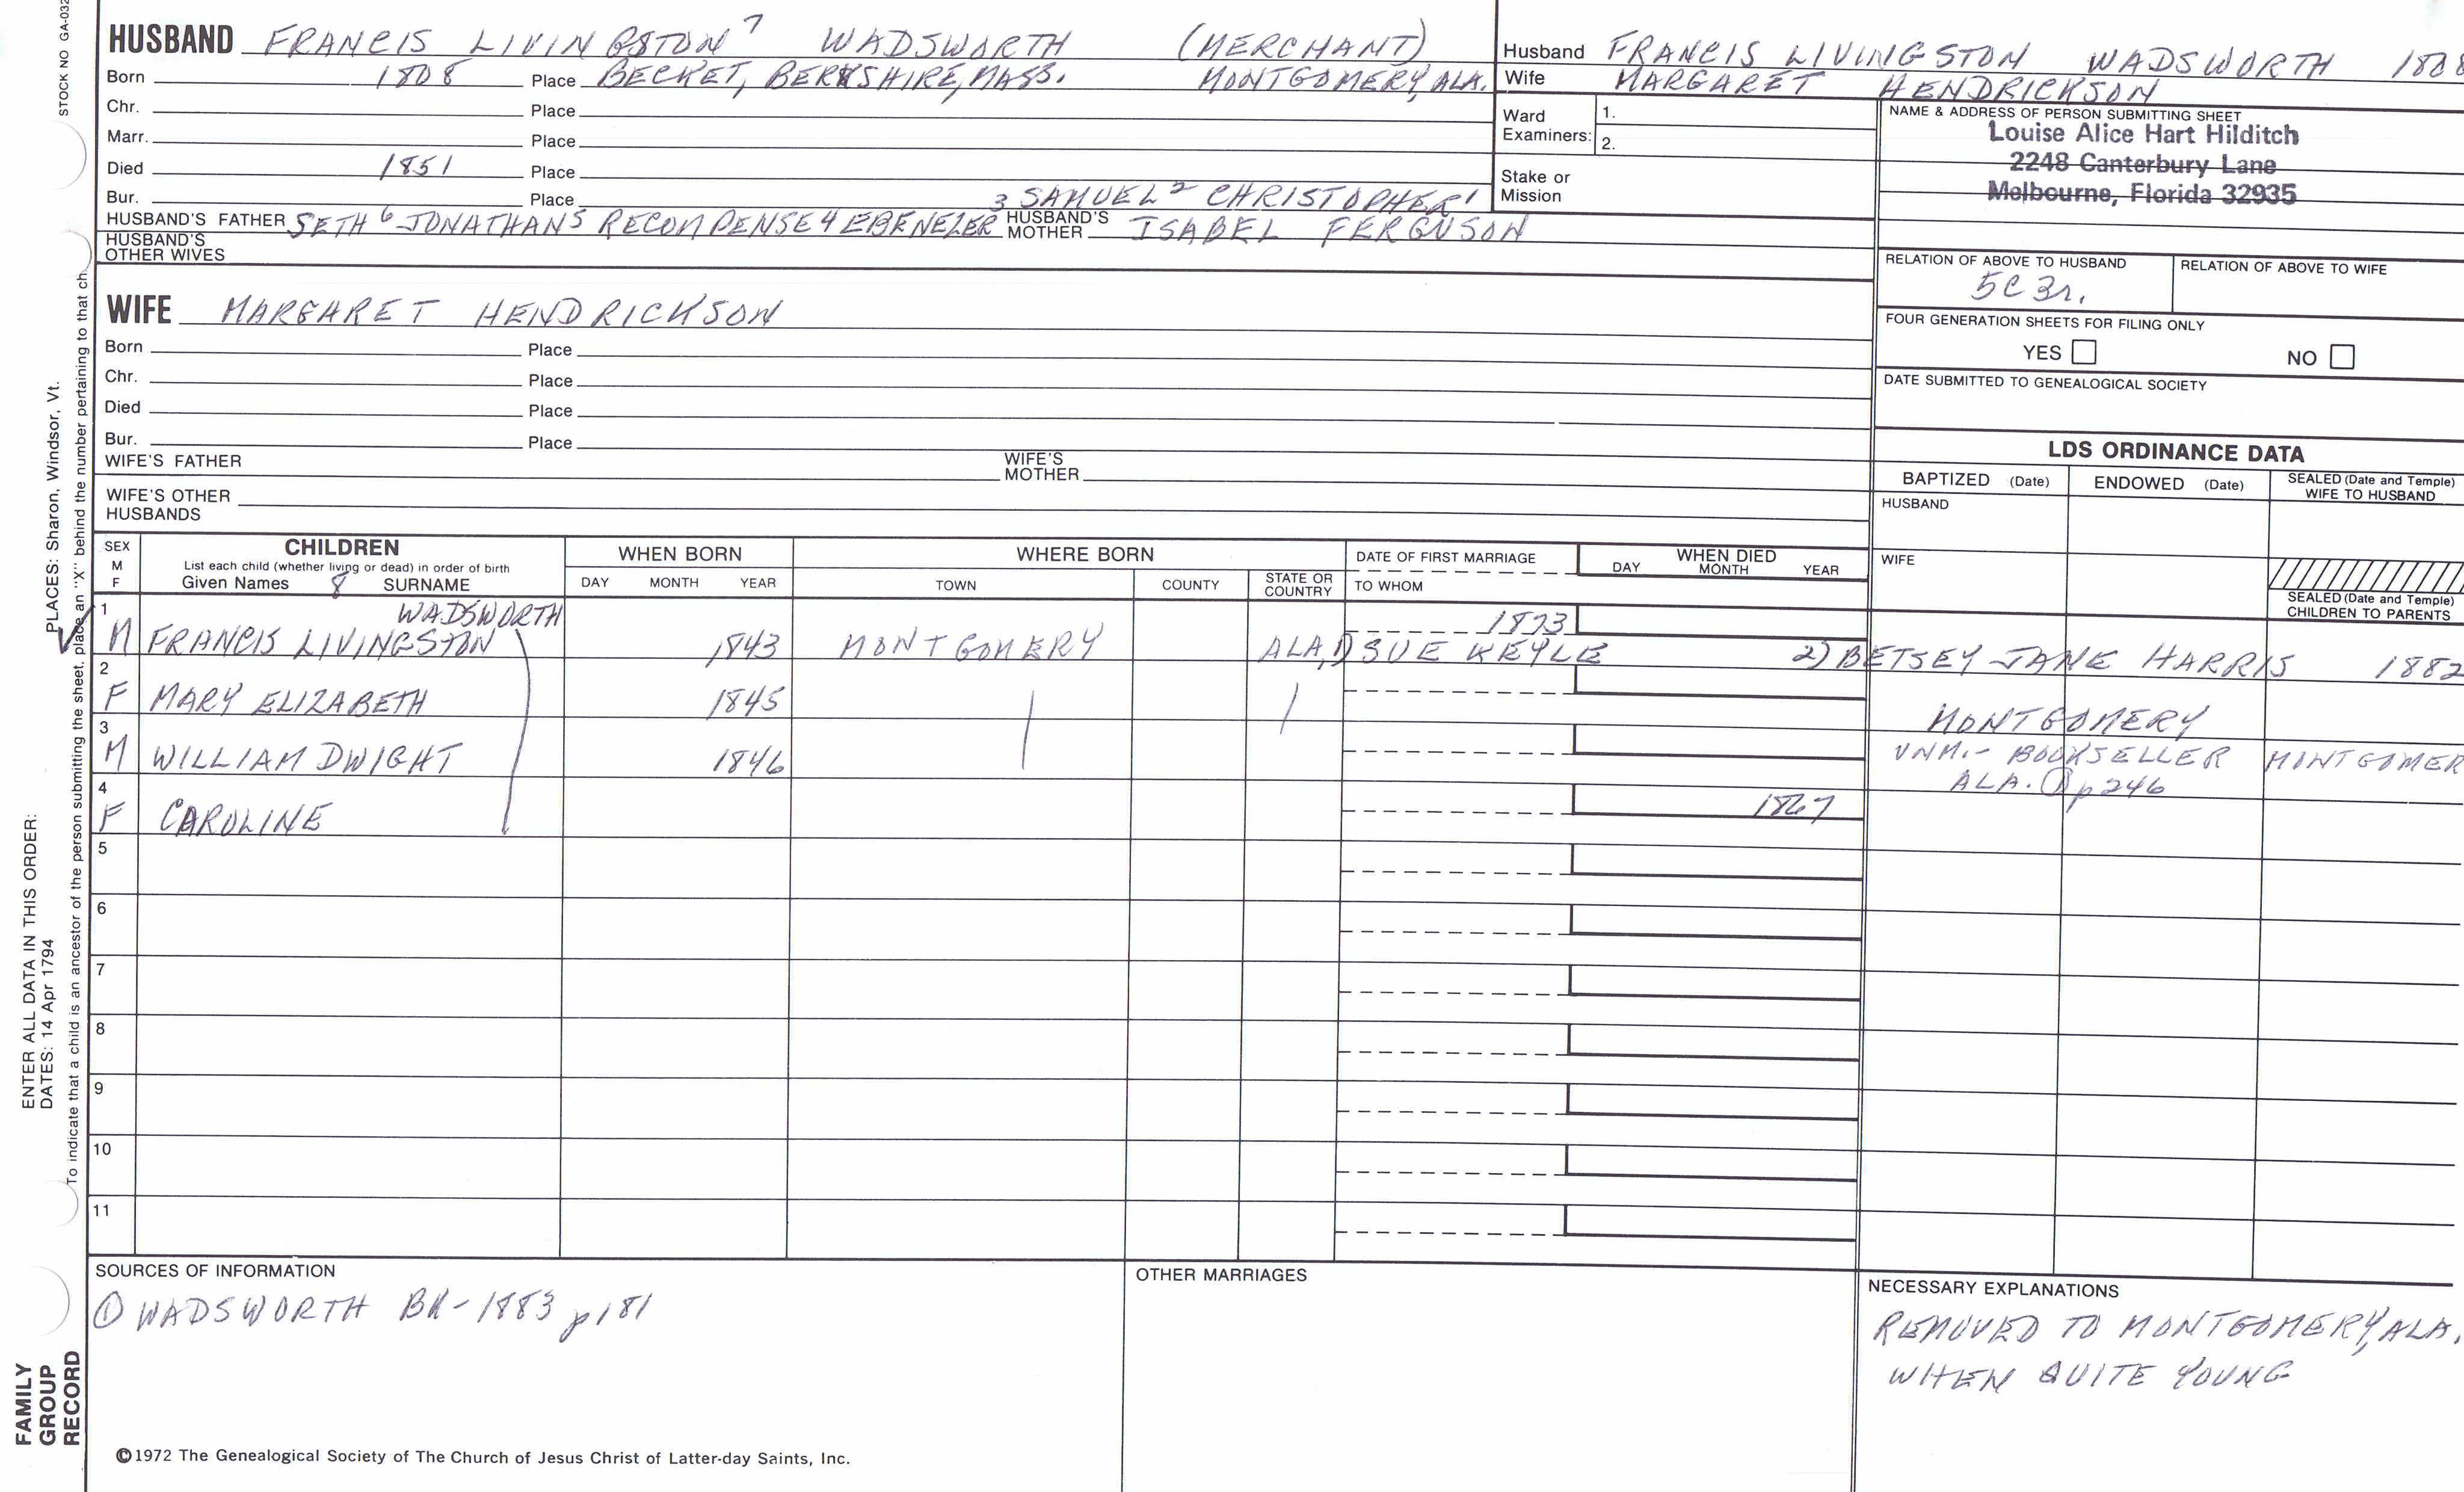 STOCK NO GA-032
HUSBAND FRANCIS LIVINGSTON 7 WADSWORTH (MERCHANT)
Born 1808 Place BECKET, BERKSHIRE, MASS. MONTGOMERY, ALA.
Chr. Place
Marr. Place
Died 1851 Place
Bur. Place
3 SAMUEL 2 CHRISTOPHER 1
HUSBAND'S FATHER SETH 6 JONATHAN 5 RECOMPENSE 4 EBENEZER HUSBAND'S MOTHER ISABEL FERGUSON
HUSBAND'S OTHER WIVES
Husband FRANCIS LIVINGSTON WADSWORTH 1808
Wife MARGARET HENDRICKSON
Ward Examiners: 1.
2.
Stake or Mission
NAME & ADDRESS OF PERSON SUBMITTING SHEET
Louise Alice Hart Hilditch
2248 Canterbury Lane
Melbourne, Florida 32935
RELATION OF ABOVE TO HUSBAND RELATION OF ABOVE TO WIFE
5C 3r.
FOUR GENERATION SHEETS FOR FILING ONLY
YES NO
DATE SUBMITTED TO GENEALOGICAL SOCIETY
WIFE MARGARET HENDRICKSON
Born Place
Chr. Place
Died Place
Bur. Place
WIFE'S FATHER WIFE'S MOTHER
WIFE'S OTHER HUSBANDS
LDS ORDINANCE DATA
BAPTIZED (Date) ENDOWED (Date) SEALED (Date and Temple) WIFE TO HUSBAND
HUSBAND
WIFE
SEALED (Date and Temple) CHILDREN TO PARENTS
SEX M F
CHILDREN
List each child (whether living or dead) in order of birth
Given Names 8 SURNAME
WHEN BORN
DAY MONTH YEAR
WHERE BORN
TOWN COUNTY STATE OR COUNTRY
DATE OF FIRST MARRIAGE
TO WHOM
WHEN DIED
DAY MONTH YEAR
1 WADSWORTH 1873
M FRANCIS LIVINGSTON 1843 MONTGOMERY ALA. 1) SUE KEYLE 2) BETSEY JANE HARRIS 1882
2
F MARY ELIZABETH 1845 MONTGOMERY
3
M WILLIAM DWIGHT 1846 UNM. - BOOKSELLER MONTGOMER
ALA. 1 p 246
4
F CAROLINE 1867
5
6
7
8
9
10
11
SOURCES OF INFORMATION
① WADSWORTH BK - 1883 p 181
OTHER MARRIAGES
NECESSARY EXPLANATIONS
REMOVED TO MONTGOMERY, ALA.
WHEN QUITE YOUNG
©1972 The Genealogical Society of The Church of Jesus Christ of Latter-day Saints, Inc.
FAMILY
GROUP
RECORD
ENTER ALL DATA IN THIS ORDER:
DATES: 14 Apr 1794
PLACES: Sharon, Windsor, Vt.
To indicate that a child is an ancestor of the person submitting the sheet, place an "X" behind the number pertaining to that ch